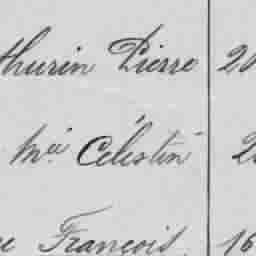 thurin Pierre 20
Mée Célestin 2
François 16